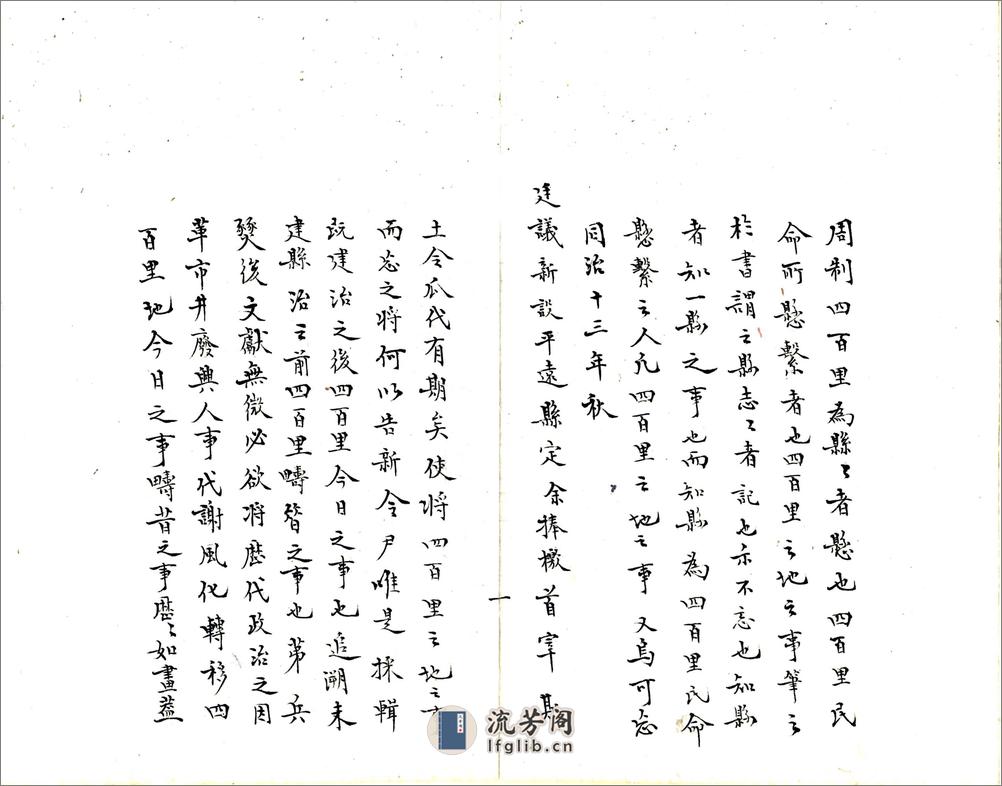 周制四百里為縣〻者懸也四百里民
命所懸繫者也四百里之地之事筆之
於書謂之縣志〻者記也示不忘也知縣
者知一縣之事也而知縣為四百里民命
懸繫之人凡四百里之地之事又烏可忘
同治十三年秋
建議新設平遠縣定余捧檄首宰其
一
土令瓜代有期矣使將四百里之地之
而忘之將何以告新令尹唯是採輯
既建治之後四百里今日之事也追溯未
建縣治之前四百里疇昔之事也第兵
燹後文獻無徵必欲將歷代政治之因
革市井廢興人事代謝風化轉移四
百里地今日之事疇昔之事歷〻如畫蓋
流芳阁
lfglib.cn